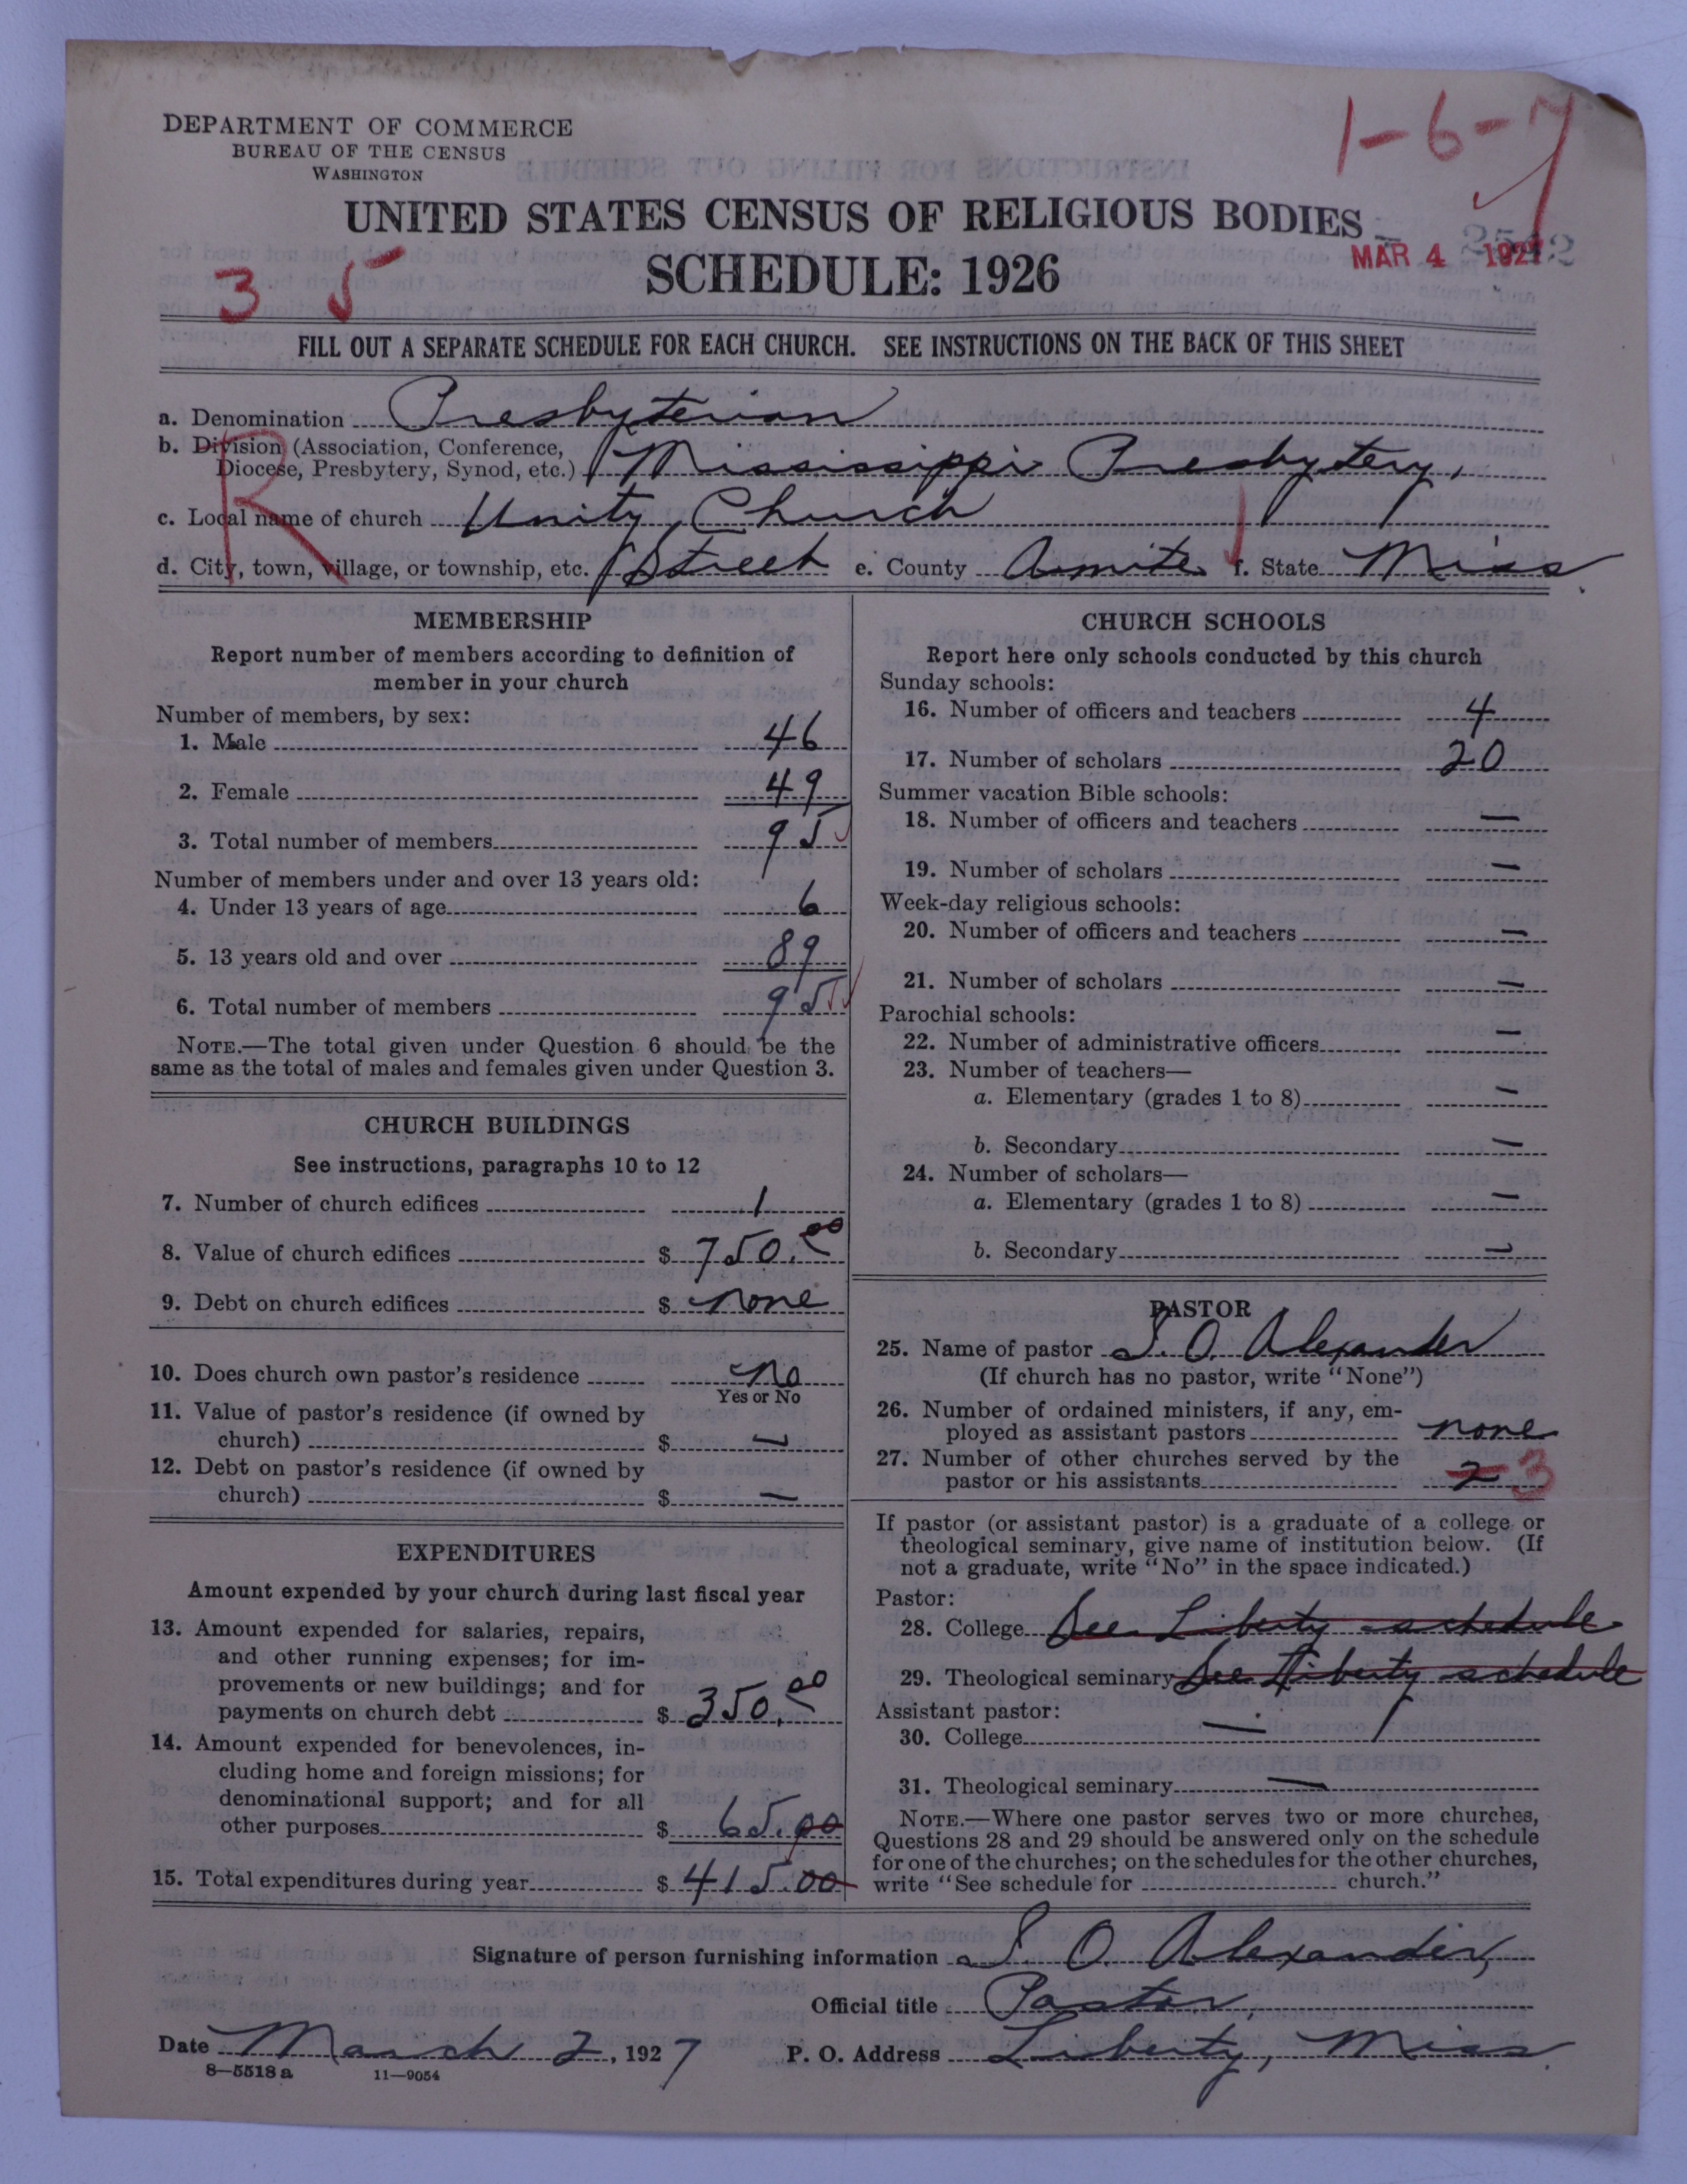 DEPARTMENT OF COMMERCE
BUREAU OF THE CENSUS
WASHINGTON
1-6-7
UNITED STATES CENSUS OF RELIGIOUS BODIES
MAR 4 1927
SCHEDULE: 1926
3 5
FILL OUT A SEPARATE SCHEDULE FOR EACH CHURCH. SEE INSTRUCTIONS ON THE BACK OF THIS SHEET
a. Denomination Presbyterian
b. Division (Association, Conference,
Diocese, Presbytery, Synod, etc.) Mississippi Presbytery,
R
c. Local name of church Unity Church
d. City, town, village, or township, etc. Street e. County Amite f. State Miss.
MEMBERSHIP
Report number of members according to definition of
member in your church
Number of members, by sex:
1. Male 46
2. Female 49
3. Total number of members 95
Number of members under and over 13 years old:
4. Under 13 years of age 6
5. 13 years old and over 89
6. Total number of members 95
NOTE.—The total given under Question 6 should be the
same as the total of males and females given under Question 3.
CHURCH BUILDINGS
See instructions, paragraphs 10 to 12
7. Number of church edifices 1
8. Value of church edifices $ 750.00
9. Debt on church edifices $ none
10. Does church own pastor's residence No
Yes or No
11. Value of pastor's residence (if owned by
church) $ —
12. Debt on pastor's residence (if owned by
church) $ —
EXPENDITURES
Amount expended by your church during last fiscal year
13. Amount expended for salaries, repairs,
and other running expenses; for im-
provements or new buildings; and for
payments on church debt $ 350.00
14. Amount expended for benevolences, in-
cluding home and foreign missions; for
denominational support; and for all
other purposes $ 65.00
15. Total expenditures during year $ 415.00
CHURCH SCHOOLS
Report here only schools conducted by this church
Sunday schools:
16. Number of officers and teachers 4
17. Number of scholars 20
Summer vacation Bible schools:
18. Number of officers and teachers —
19. Number of scholars —
Week-day religious schools:
20. Number of officers and teachers —
21. Number of scholars —
Parochial schools:
22. Number of administrative officers —
23. Number of teachers—
a. Elementary (grades 1 to 8) —
b. Secondary —
24. Number of scholars—
a. Elementary (grades 1 to 8) —
b. Secondary —
PASTOR
25. Name of pastor S. O. Alexander
(If church has no pastor, write "None")
26. Number of ordained ministers, if any, em-
ployed as assistant pastors none
27. Number of other churches served by the
pastor or his assistants 2 3
If pastor (or assistant pastor) is a graduate of a college or
theological seminary, give name of institution below. (If
not a graduate, write "No" in the space indicated.)
Pastor:
28. College See Liberty schedule
29. Theological seminary See Liberty schedule
Assistant pastor:
30. College —
31. Theological seminary —
NOTE.—Where one pastor serves two or more churches,
Questions 28 and 29 should be answered only on the schedule
for one of the churches; on the schedules for the other churches,
write "See schedule for church."
Signature of person furnishing information S. O. Alexander,
Official title Pastor,
Date March 2, 1927 P. O. Address Liberty, Miss.
8—5518 a 11—9054